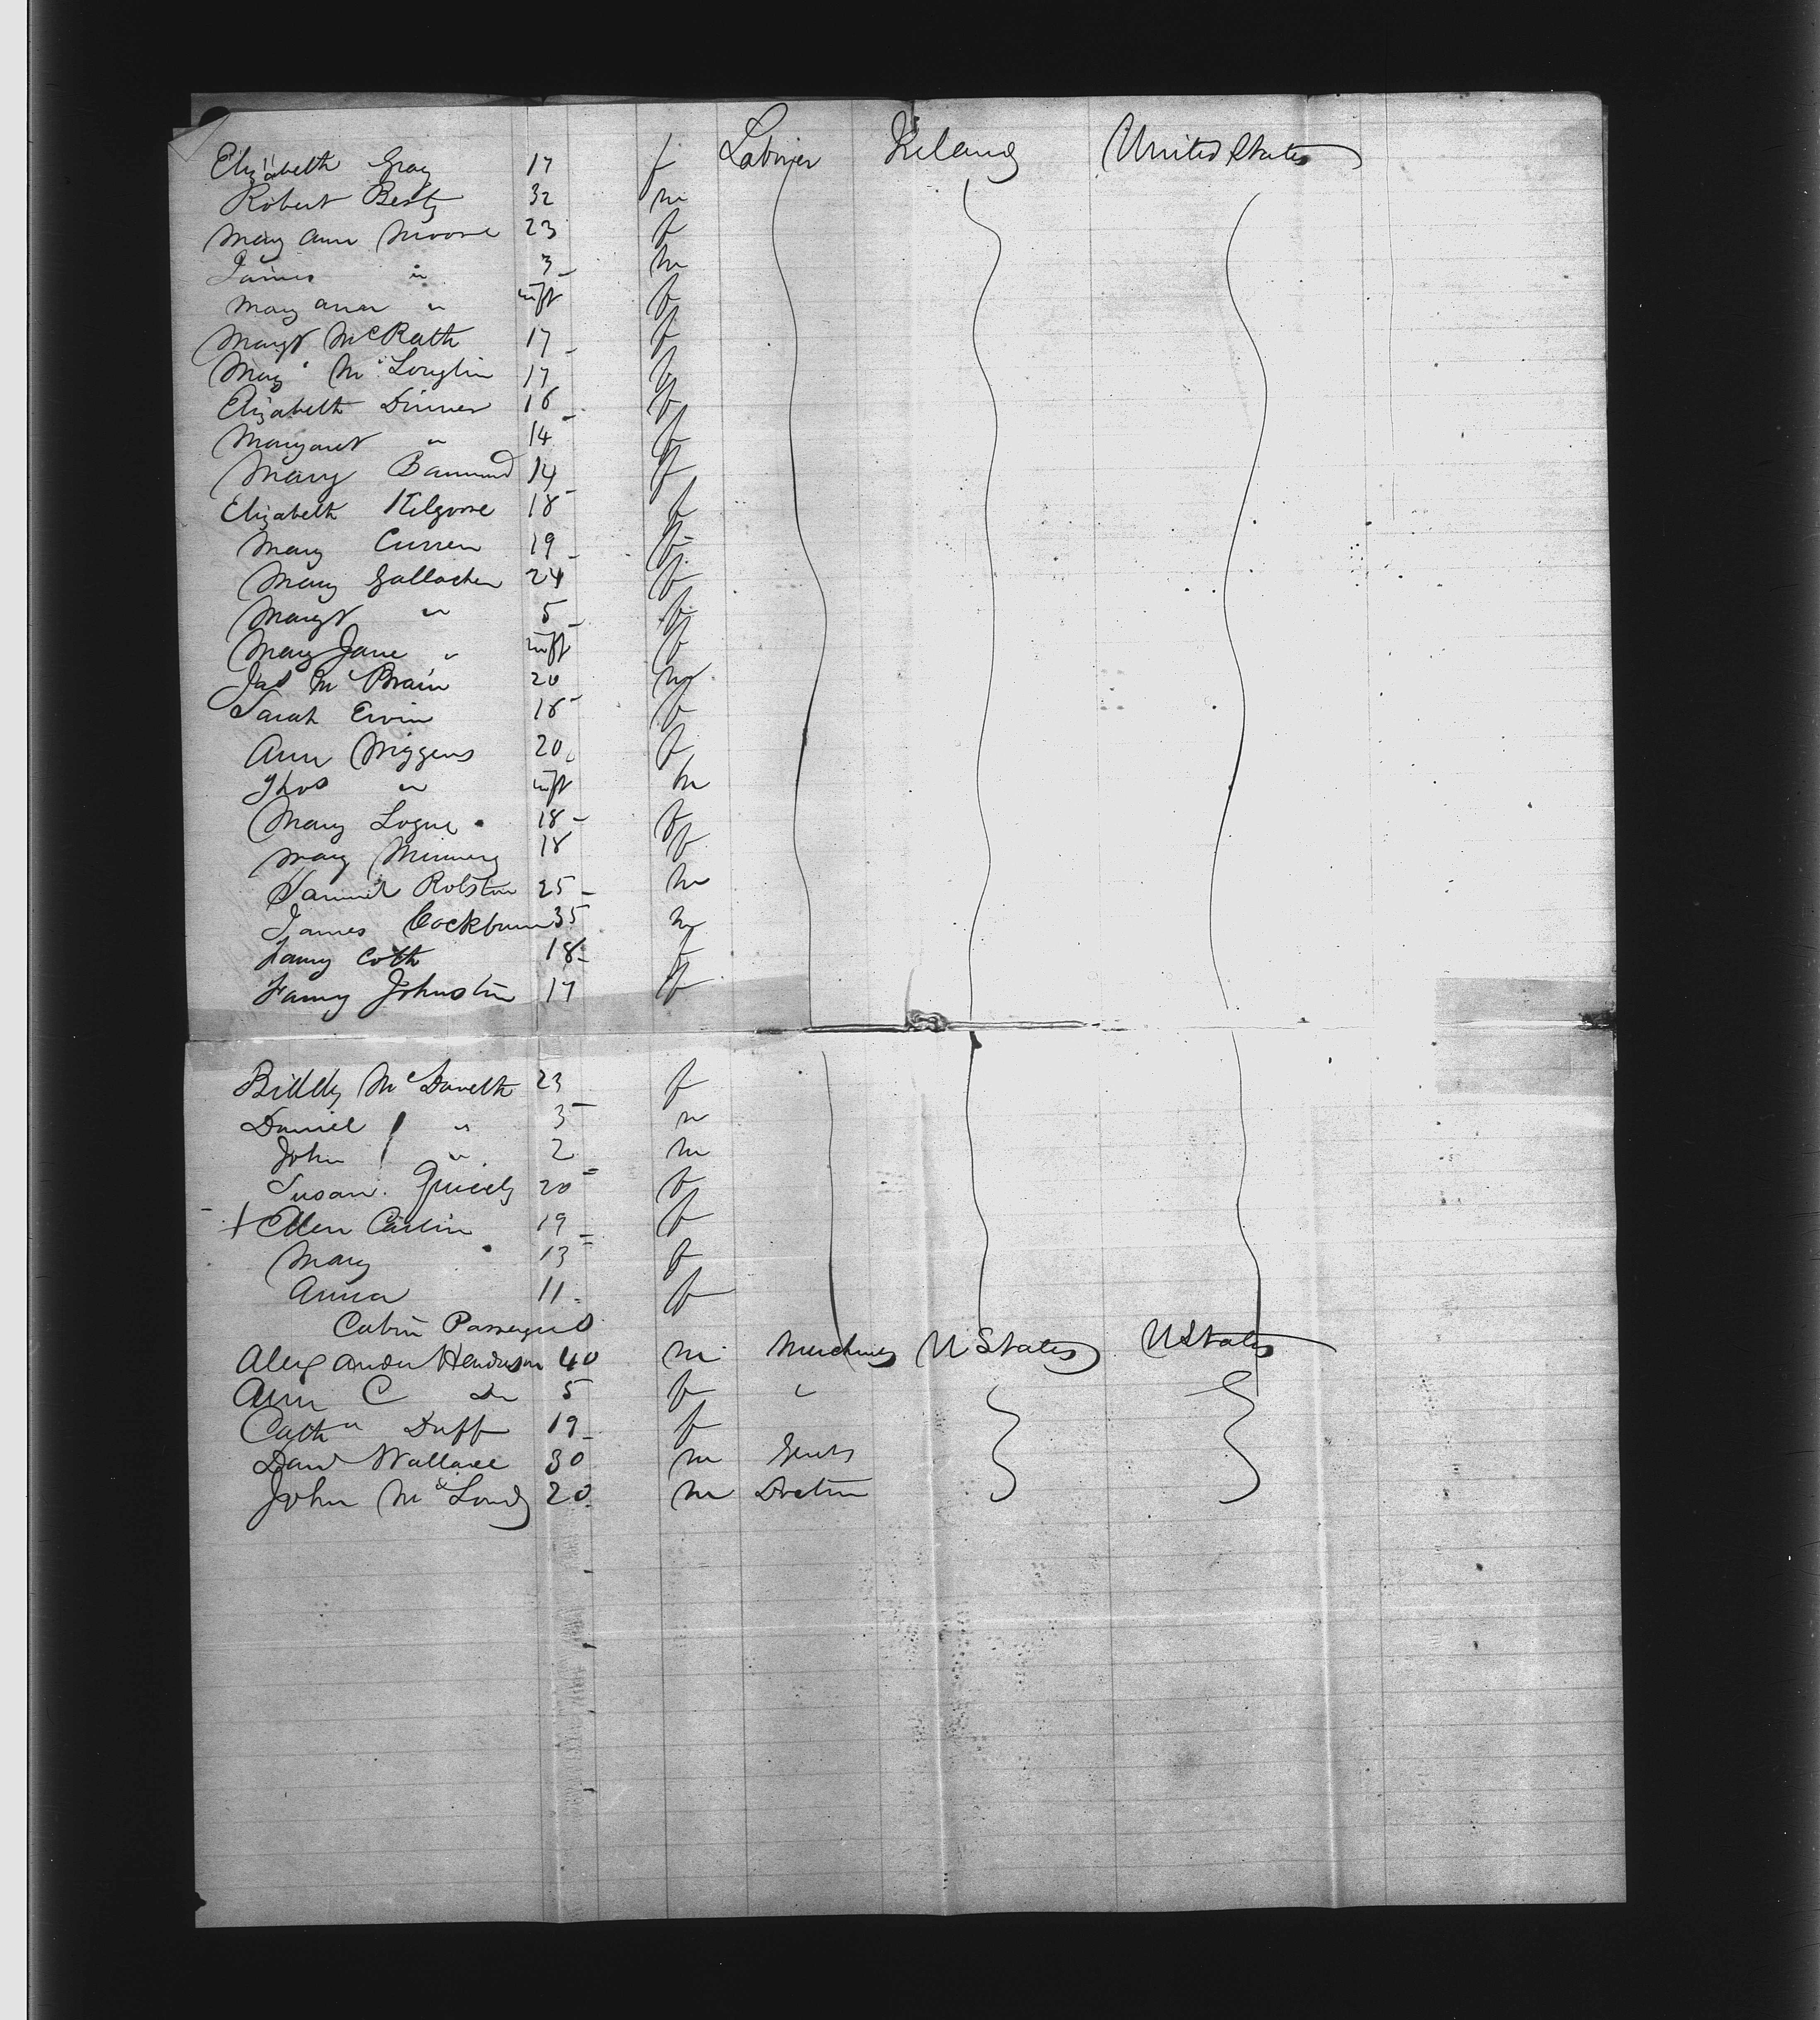 Elizabeth Gray 17 f Labourer Ireland United States
Robert Beaty 32 m
Mary Ann Moore 23 f
James " 3 m
Mary Ann " inft f
Margt McRath 17 f
Mary McLoughlin 17 f
Elizabeth Dinner 16 f
Margaret " 14 f
Mary 14 f
Elizabeth Kilgore 18 f
Mary Curren 19 f
Mary Gallacher 24 f
Margt " 5 f
Mary Jane " inft f
Jas McBrain 20 m
Sarah Ervin 18 f
Ann Wiggens 20 f
Thos " inft m
Mary Logue 18 f
Mary 18 f
Samuel Rolston 25 m
James Cockburn 35 m
Fanny Coth 18 f
Fanny Johnston 17 f
Biddy McDavett 23 f
Daniel " 3 m
John " 2 m
Susan 20 f
+ Ellen Carlin 19 f
Mary 13 f
Anna 11 f
Cabin Passengers
Alexander Henderson 40 m U States U States
Ann C Do 5 f "
Cath Duff 19 f
David Wallace 30 m Gents
John 20 m Doctor